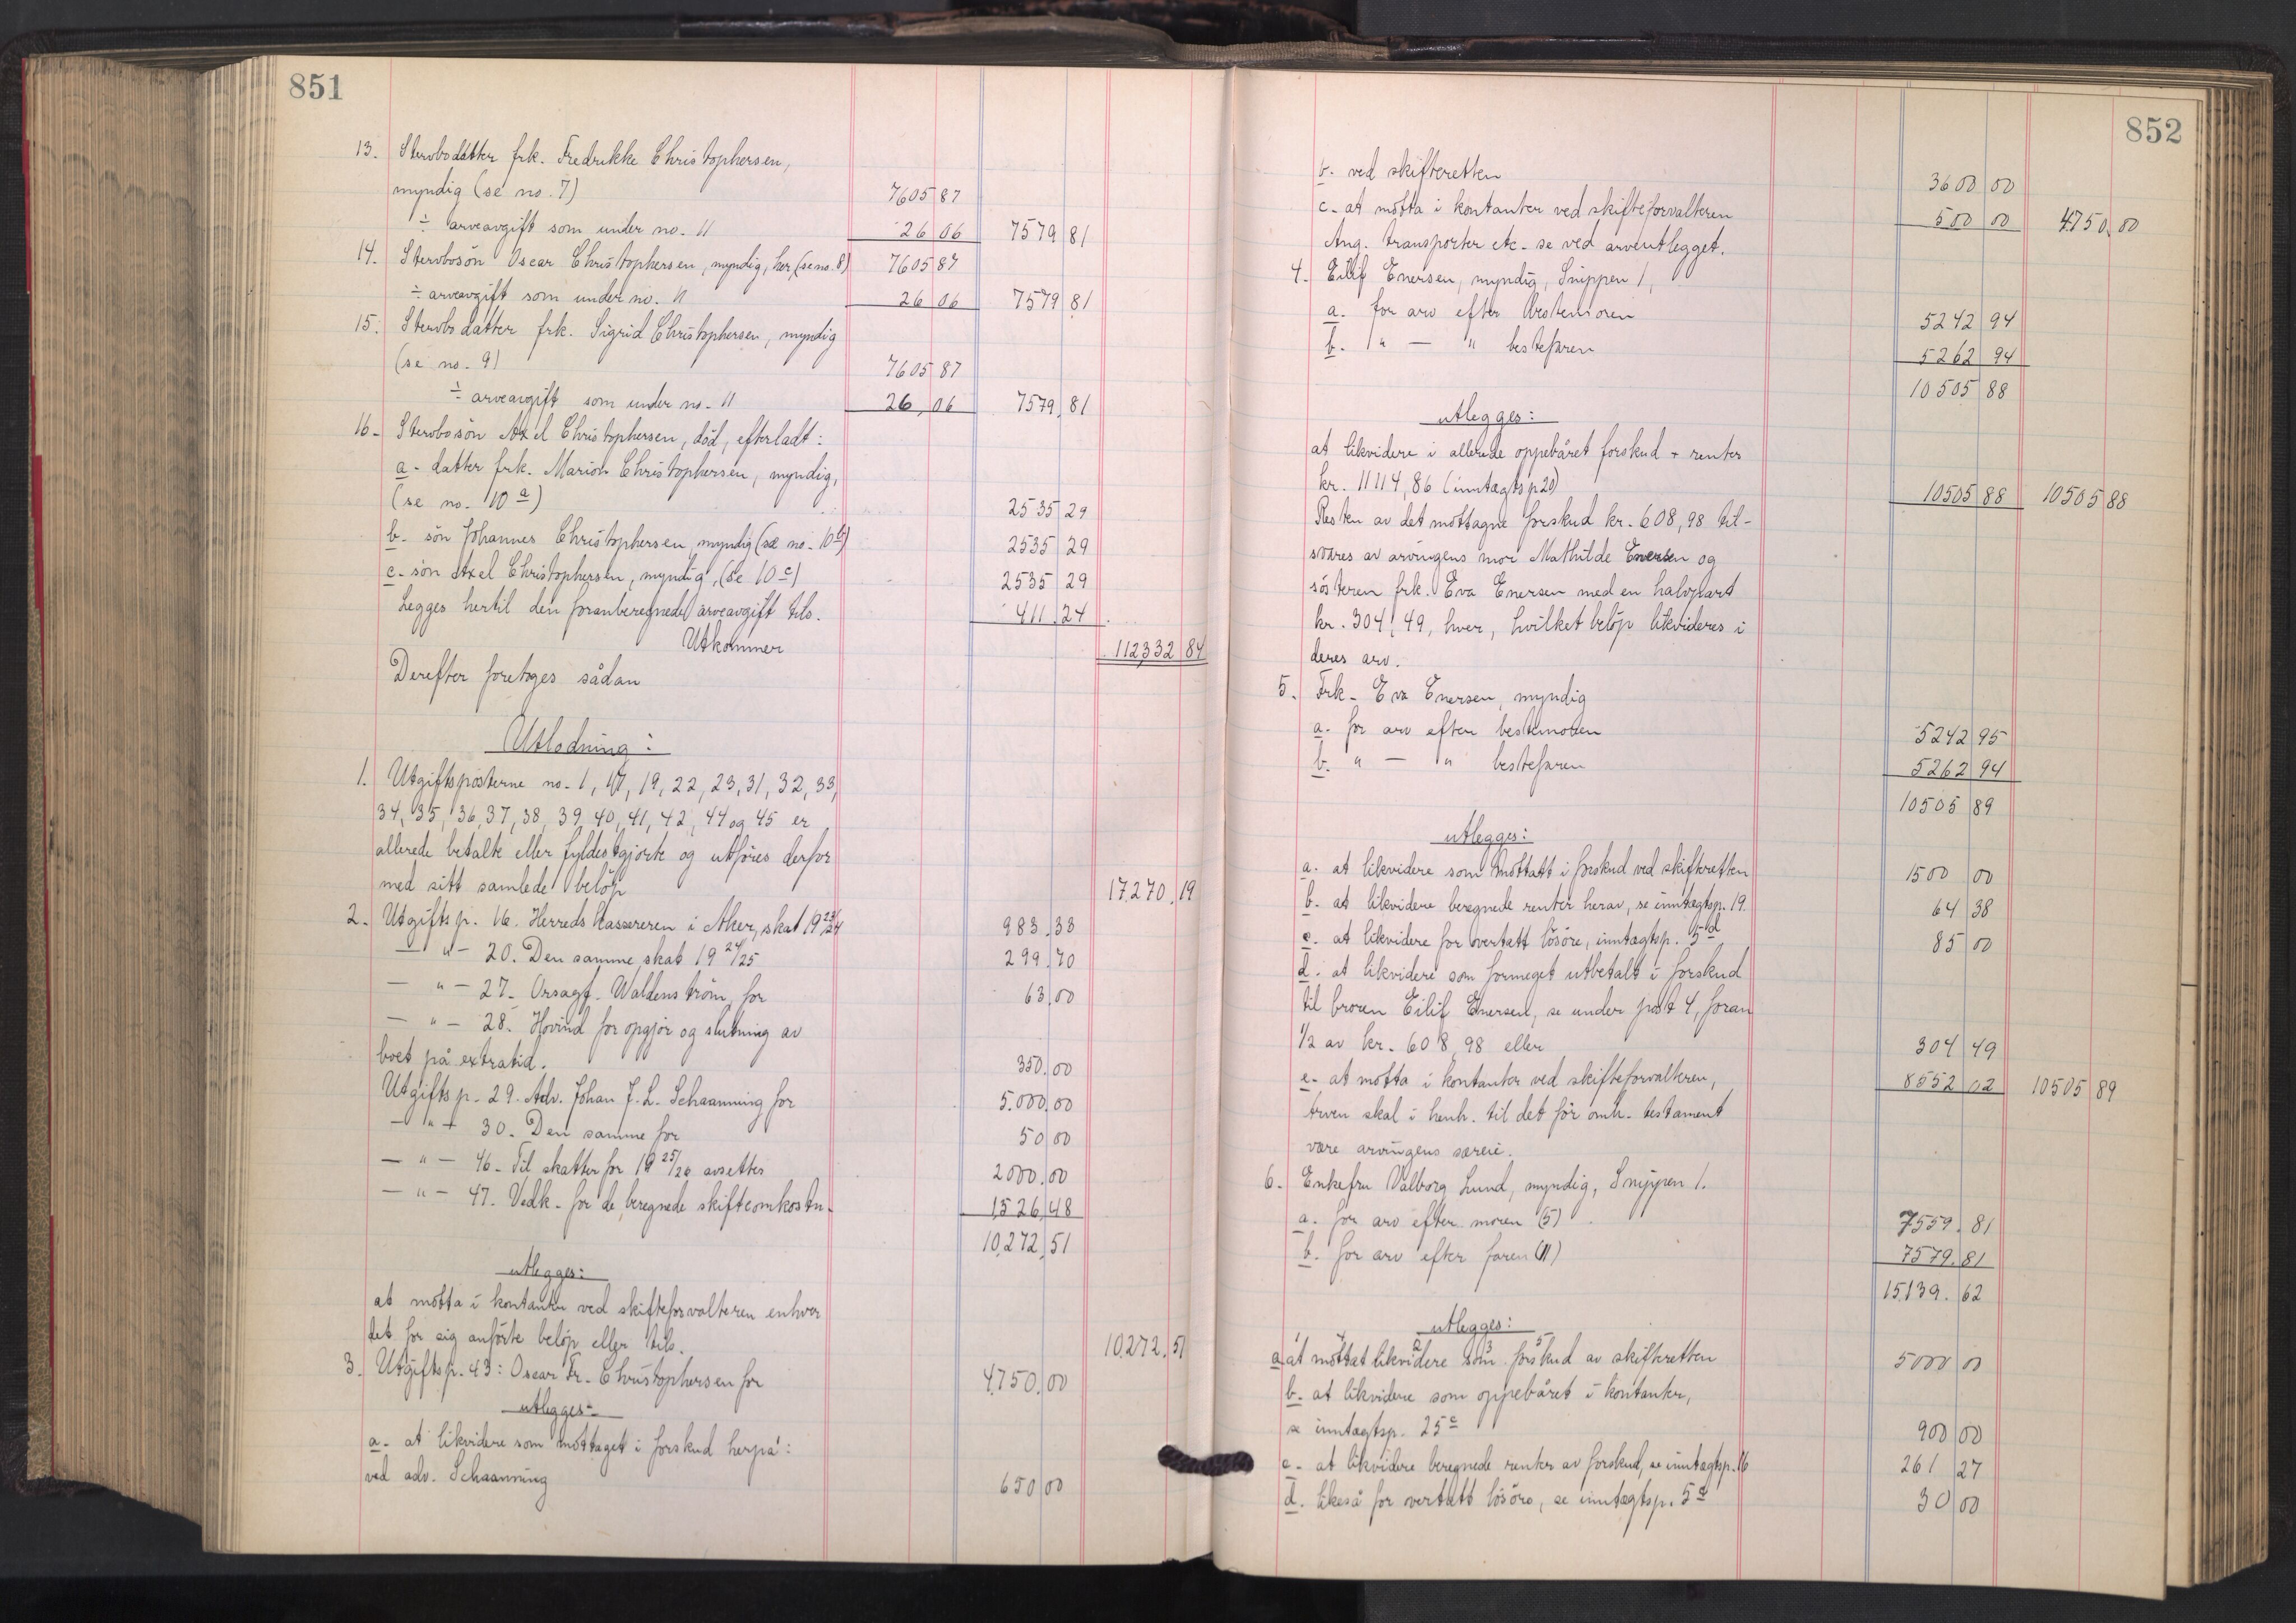 851
13. Stervbodatter frk. Fredrikke Christophersen,
myndig (se no. 7) 7605 87
÷ arveavgift som under no. 11 26 06 7579 81
14. Stervbosön Oscar Christophersen, myndig, her, (se no. 8) 7605 87
÷ arveavgift som under no. 11 26 06 7579 81
15. Stervbodatter frk. Sigrid Christophersen, myndig
(se no. 9) 7605 87
÷ arveavgift som under no. 11 26,06 7579,81
16. Stervbosön Axel Christophersen, död, efterladt:
a. datter frk. Marion Christophersen, myndig,
(se no. 10 a) 2535 29
b. sön Johannes Christophersen myndig (se no. 10 b) 2535 29
c. sön Axel Christophersen, myndig, (se 10 c) 2535 29
Legges hertil den foranberegnede arveavgift tils. 411.24
Utkommer 112332 84
Derefter foretages sådan
Utlodning:
1. Utgiftsposterne no. 1, 17, 19, 22, 23, 31, 32, 33,
34, 35, 36, 37, 38, 39, 40, 41, 42, 44 og 45 er
allerede betalte eller fyldestgjorte og utföres derfor
med sitt samlede belöp 17.270.19
2. Utgiftsp. 16. Herredskassereren i Aker, skat 19 23/24 983.33
— " — 20. Den samme skat 19 24/25 299.70
— " — 27. Orsagf. Waldenström for 63.00
— " — 28. Hovind for opgjör og slutning av
boet på extratid. 350.00
Utgiftsp. 29. Adv. Johan J. L. Schaanning for 5.000.00
— " — 30. Den samme for 50 00
— " — 46. Til skatter for 19 25/26 avsettes 2000.00
— " — 47. Vedk. for de beregnede skifteomkostn. 1526,48
10,272,51
utlegges:
at motta i kontanter ved skifteforvalteren enhver
det for sig anförte belöp eller tils. 10.272.51
3. Utgiftsp. 43: Oscar Fr. Christophersen for 4.750.00
utlegges:
a. at likvidere som mottaget i forskud herpå:
ved adv. Schaanning 650 00
852
b. ved skifteretten 3600 00
c. at motta i kontanter ved skifteforvalteren 500 00 4.750.00
Ang. transporter etc. se ved arveutlegget.
4. Eilif Enersen, myndig, Snippen 1,
a. for arv efter bestemoren 5242 94
b. " — " bestefaren 5262 94
10505 88
utlegges:
at likvidere i allerede oppebåret forskud + renter
kr. 11114,86 (inntægtsp 20) 10505 88 10505 88
Resten av det mottagne forskud kr. 608,98 til-
svares av arvingens mor Mathilde Enersen og
sösteren frk. Eva Enersen med en halvpart
kr. 304,49, hver, hvilket belöp likvideres i
deres arv.
5. Frk. Eva Enersen, myndig
a. for arv efter bestemoren 5242 95
b. " — " bestefaren 5262 94
10505 89
utlegges:
a. at likvidere som mottatt i forskud ved skifteretten 1500 00
b. at likvidere beregnede renter herav, se inntægtsp. 19. 64 38
c. at likvidere for overtatt lösöre, inntægtsp. 5 d 85 00
d. at likvidere som formeget utbetalt i forskud
til broren Eilif Enersen, se under post 4, foran
1/2 av kr. 608,98 eller 304 49
e. at motta i kontanter ved skifteforvalteren, 8552 02 10505 89
Arven skal i henh. til det för omh. testament
være arvingens særeie.
6. Enkefru Valborg Lund, myndig, Snippen 1.
a. for arv efter moren (5) 7559.81
b. for arv efter faren (11) 7579.81
15.139.62
utlegges:
a. at mottat likvidere som forskud av skifteretten 5000 00
b. at likvidere som oppebåret i kontanter,
se inntægtsp. 25 c 900 00
c. at likvidere beregnede renter av forskud, se inntægtsp. 16 261 27
d. likeså for overtatt lösöre, se inntægtsp. 5 a 30 00